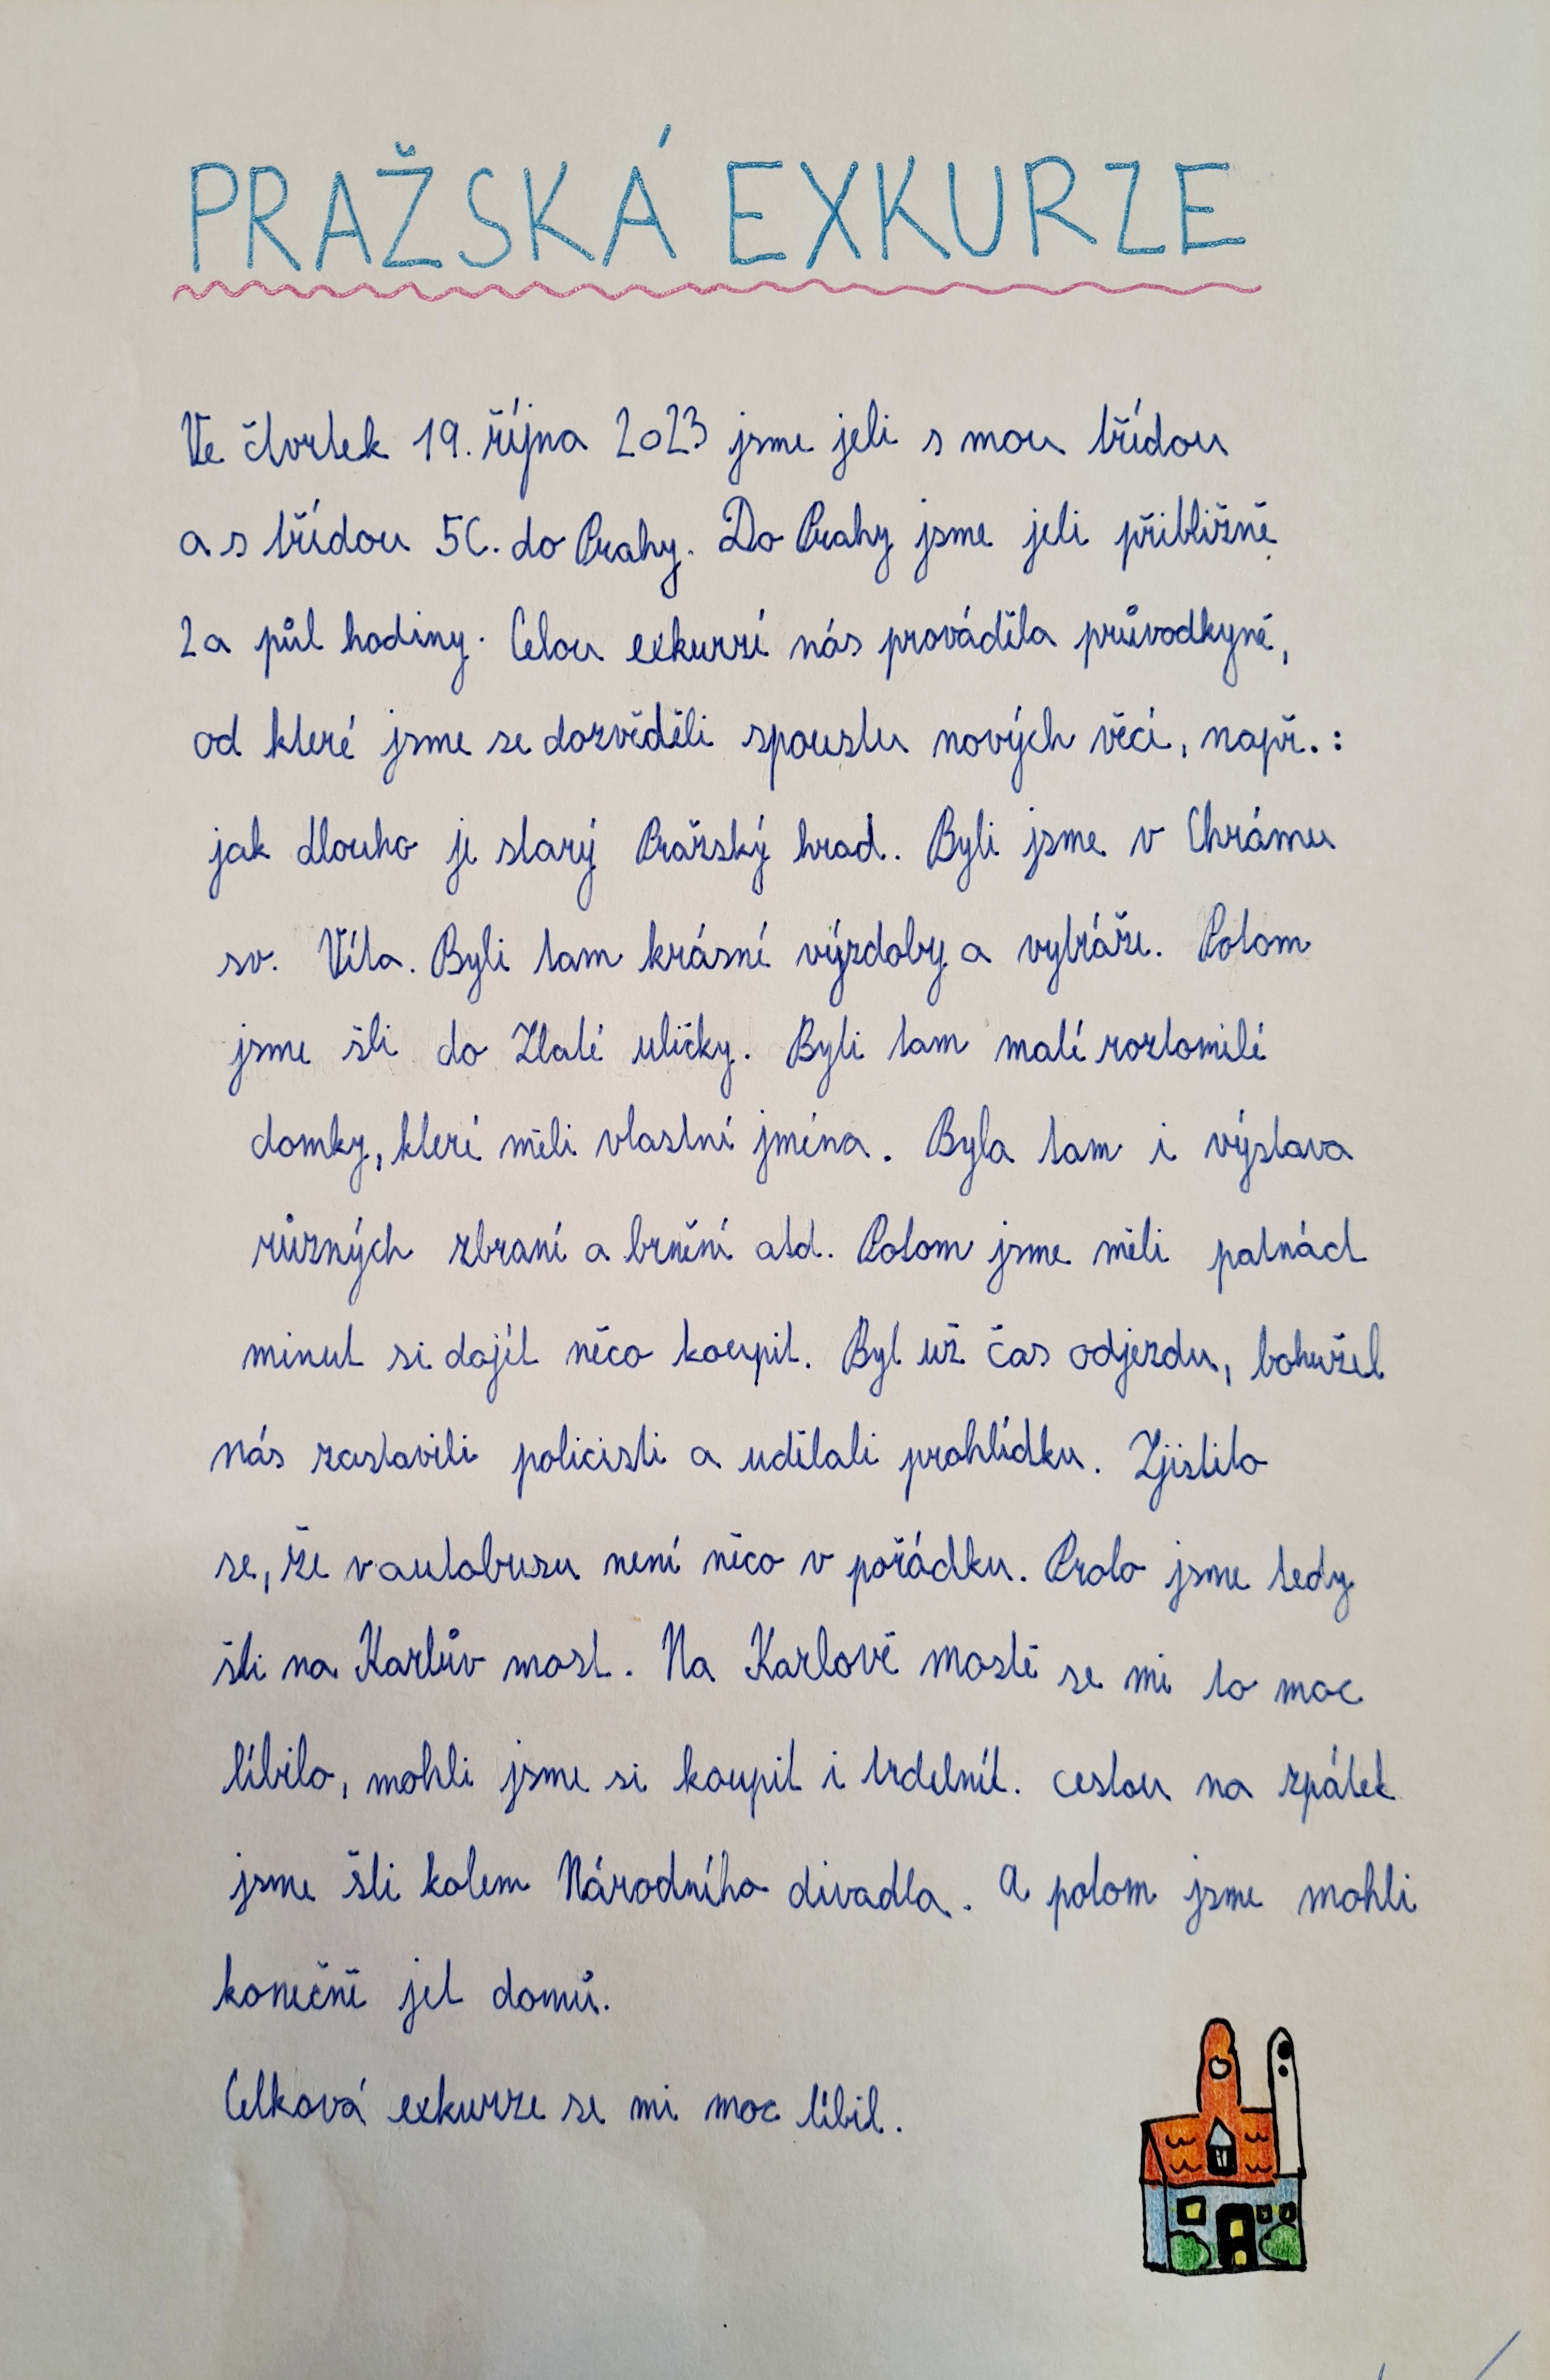 PRAŽSKÁ EXKURZE
Ve čtvrtek 19. října 2023 jsme jeli s mou třídou
a s třídou 5C. do Prahy. Do Prahy jsme jeli přibližně
2 a půl hodiny. Celou exkurzí nás prováděla průvodkyně,
od které jsme se dozvěděli spoustu nových věcí, např.:
jak dlouho je starý Pražský hrad. Byli jsme v Chrámu
sv. Víta. Byli tam krásné výzdoby a vytráže. Potom
jsme šli do Zlaté uličky. Byli tam malé roztomilé
domky, které měli vlastní jména. Byla tam i výstava
různých zbraní a brnění atd. Potom jsme měli patnáct
minut si dojít něco koupit. Byl už čas odjezdu, bohužel
nás zastavili policisti a udělali prohlídku. Zjistilo
se, že v autobusu není něco v pořádku. Proto jsme tedy
šli na Karlův most. Na Karlově mostě se mi to moc
líbilo, mohli jsme si koupit i trdelník. cestou na zpátek
jsme šli kolem Národního divadla. A potom jsme mohli
konečně jet domů.
Celková exkurze se mi moc líbil.